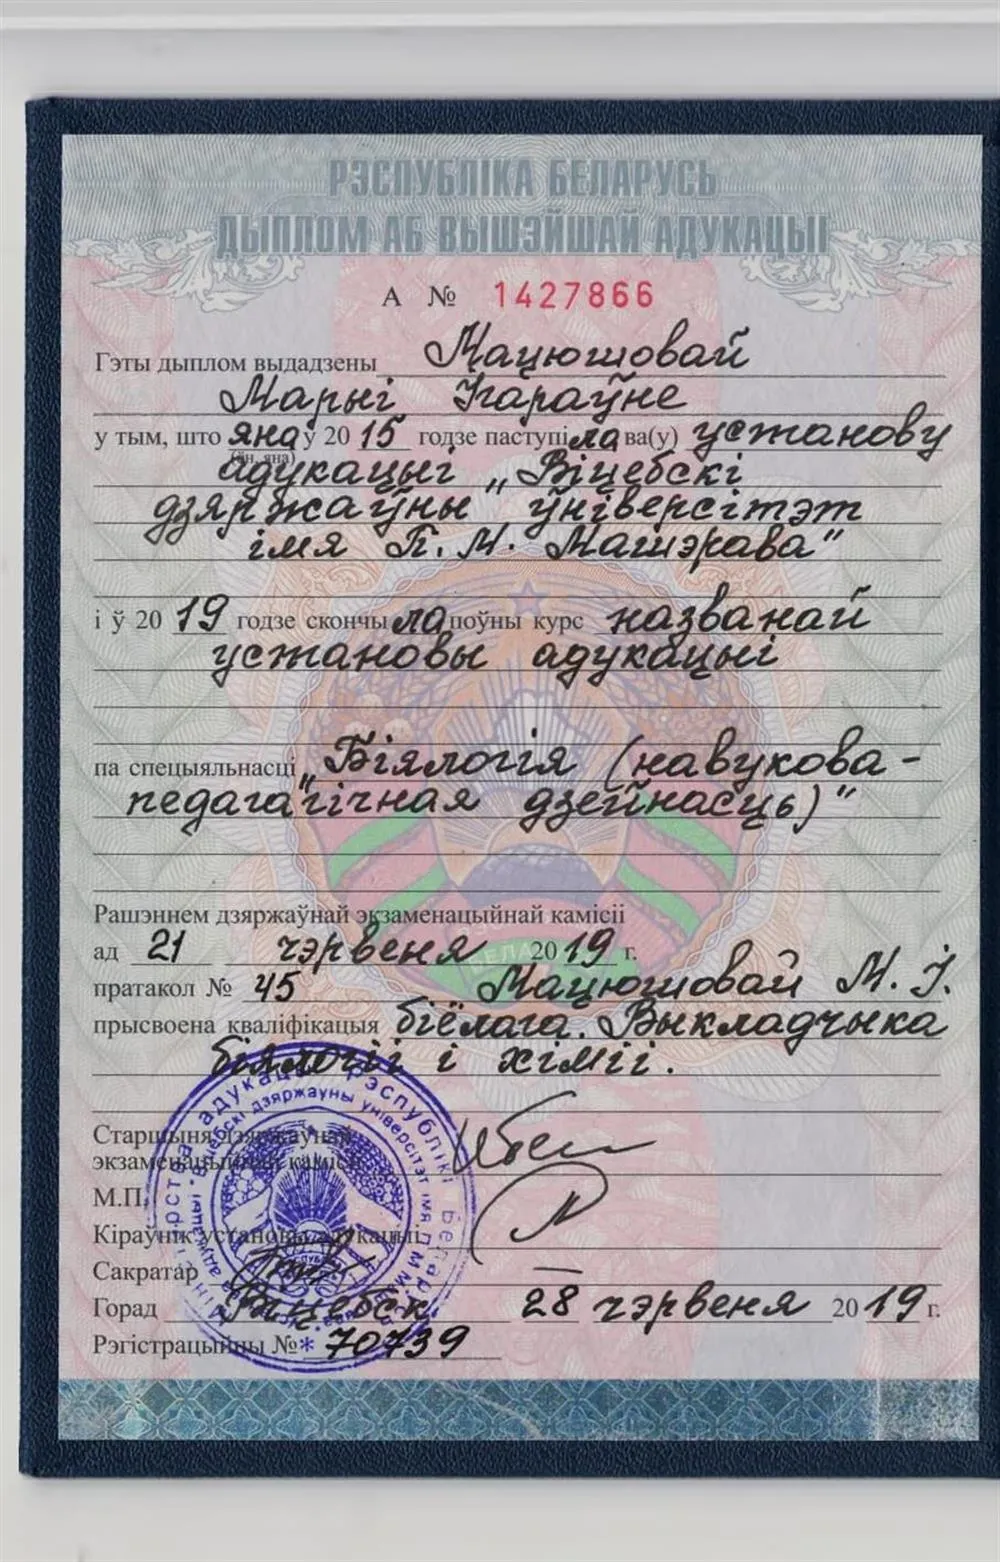 РЭСПУБЛІКА БЕЛАРУСЬ
ДЫПЛОМ АБ ВЫШЭЙШАЙ АДУКАЦЫІ
А № 1427866
Гэты дыплом выдадзены Мацюшовай
Марыі Ігараўне
у тым, што яна ў 2015 годзе паступіла ва(у) установу
(ён, яна)
адукацыі „Віцебскі
дзяржаўны ўніверсітэт
імя П. М. Машэрава"
і ў 2019 годзе скончыла поўны курс названай
установы адукацыі
па спецыяльнасці „Біялогія (навукова-
педагагічная дзейнасць)"
Рашэннем дзяржаўнай экзаменацыйнай камісіі
ад 21 чэрвеня 2019 г.
пратакол № 45 Мацюшовай М. І.
прысвоена кваліфікацыя біёлага. Выкладчыка
біялогіі і хіміі.
Старшыня дзяржаўнай
экзаменацыйнай камісіі
М.П.
Кіраўнік установы адукацыі
Сакратар
Горад Віцебск 28 чэрвеня 2019 г.
Рэгістрацыйны № 70739